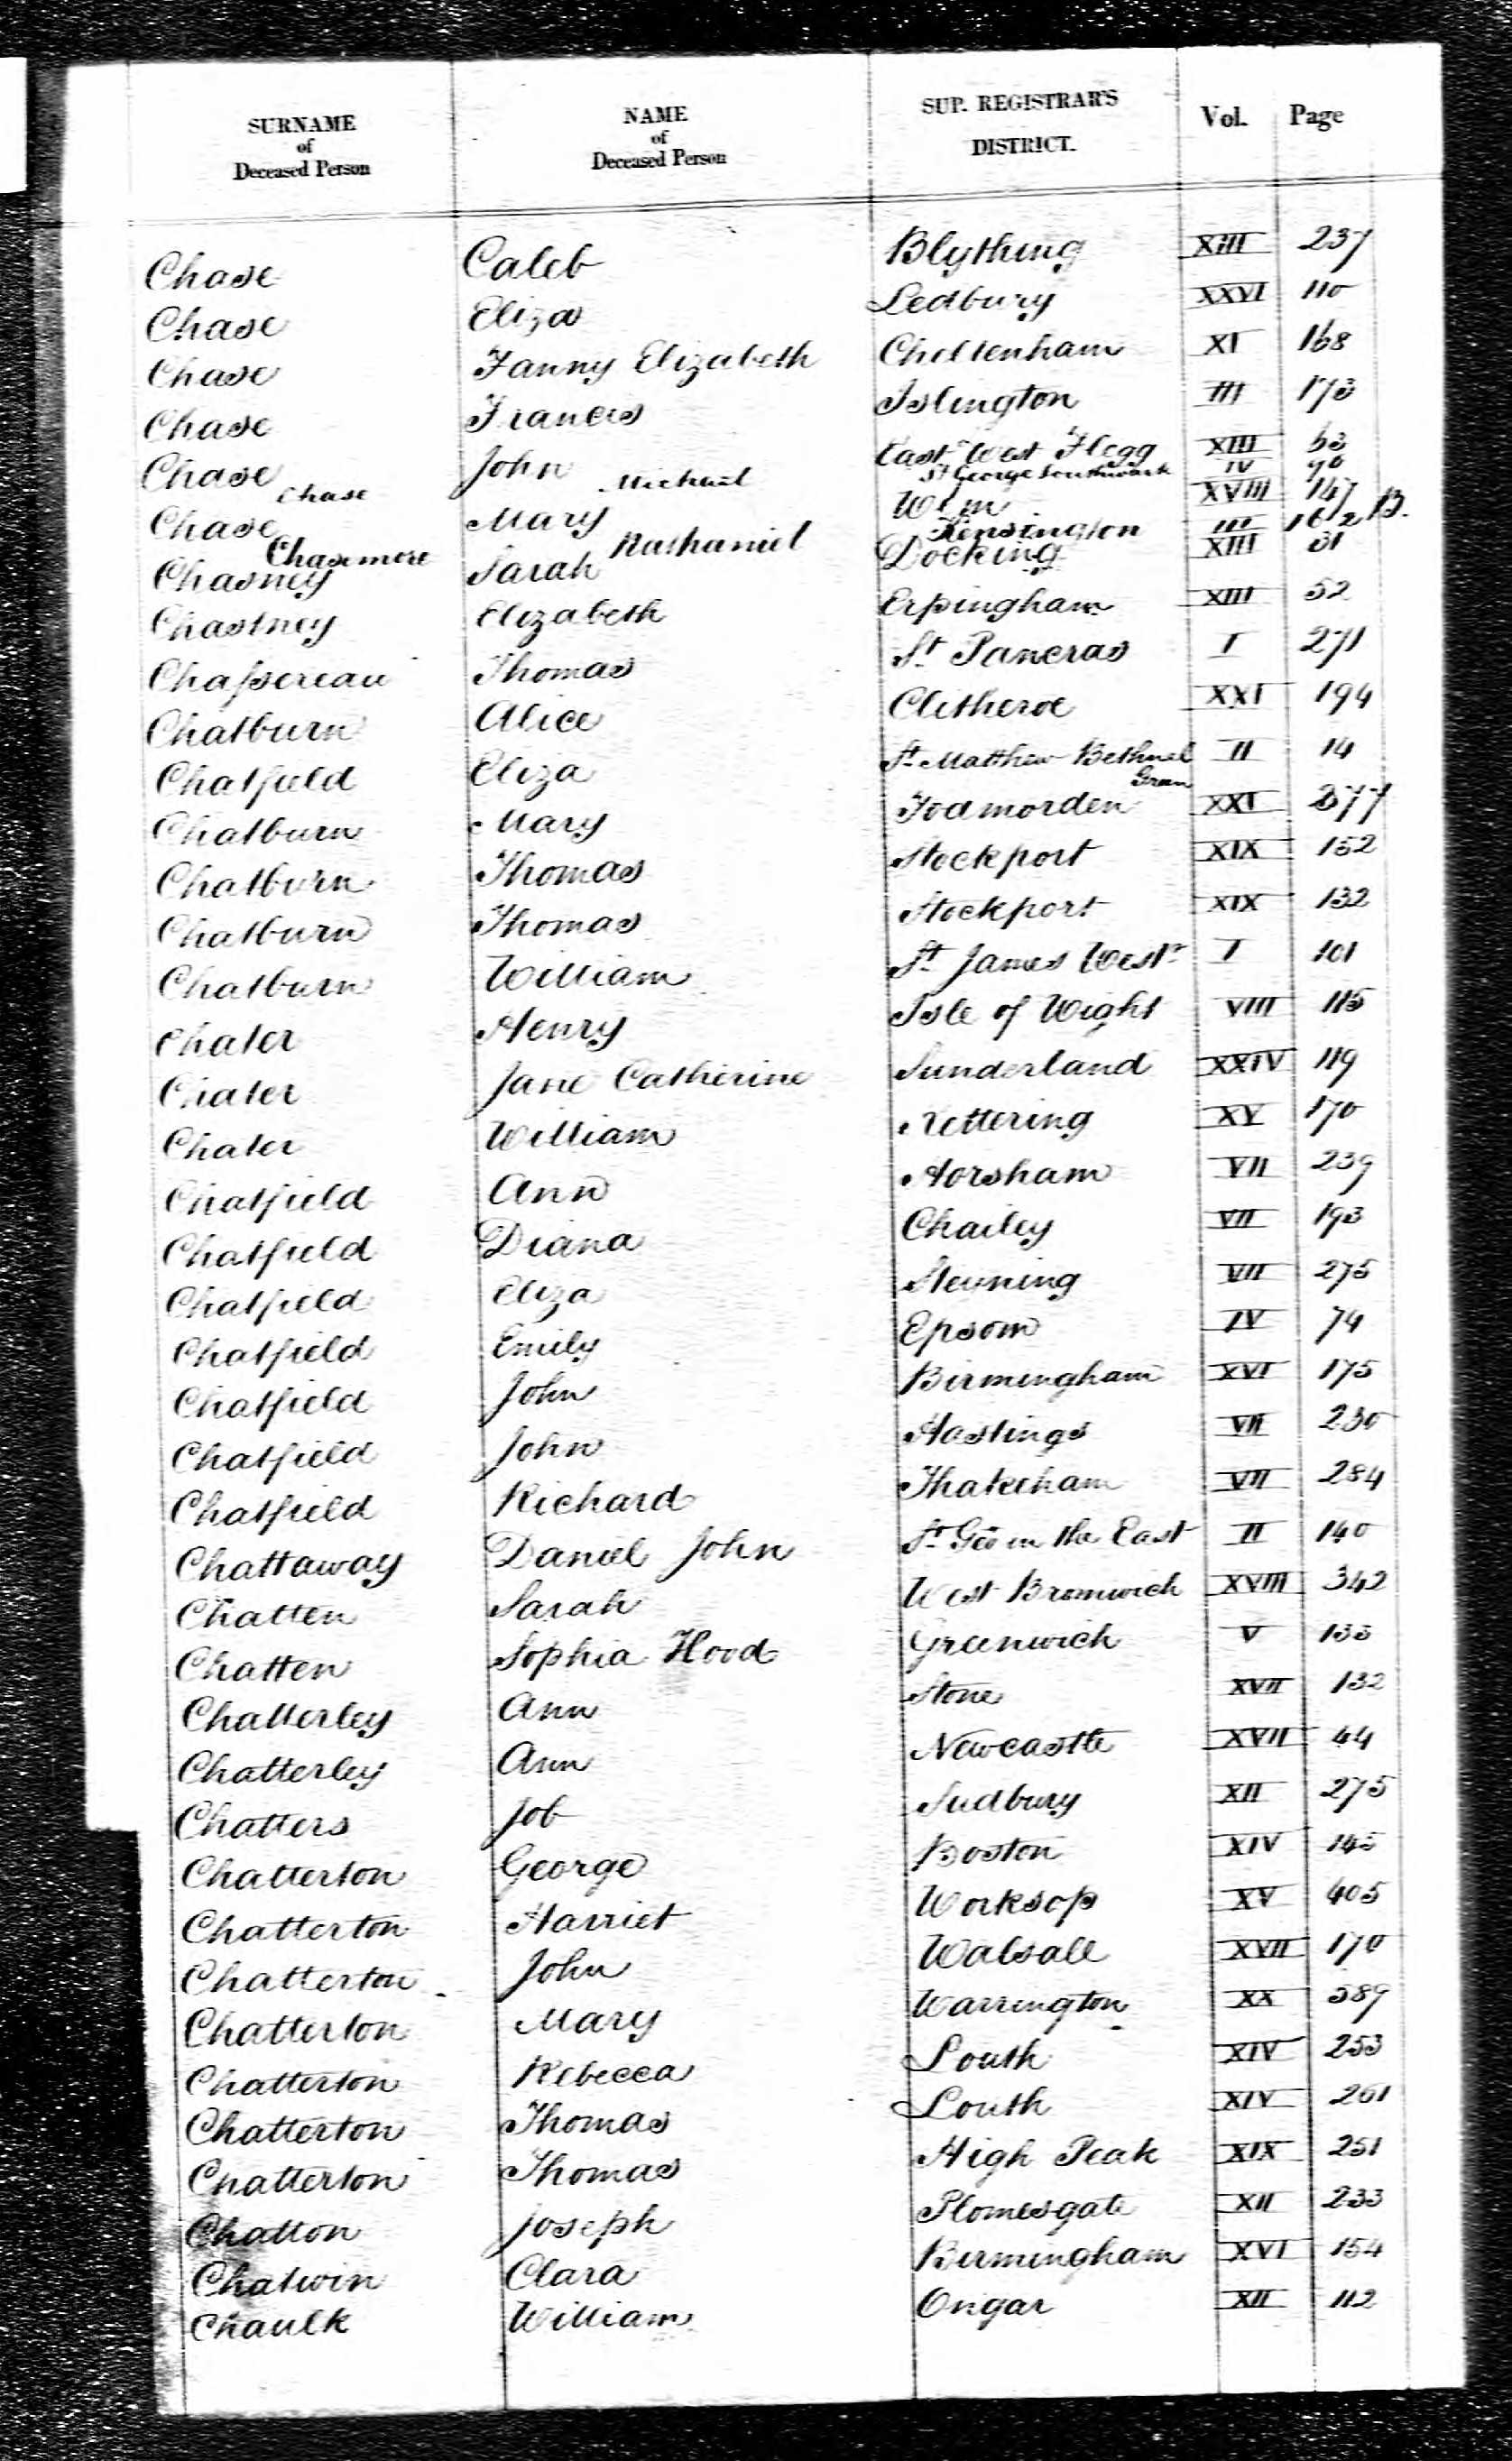 SURNAME of Deceased Person NAME of Deceased Person SUP. REGISTRAR'S DISTRICT. Vol. Page
Chase Caleb Blything XIII 237
Chase Eliza Ledbury XXVI 110
Chase Fanny Elizabeth Cheltenham XI 168
Chase Francis Islington III 173
Chase John East & West Flegg XIII 63
Chase Michael St George Southwark IV 90
Chase Mary Wem XVIII 147
Chasemore Nathaniel Kensington III 162 B.
Chasney Sarah Docking XIII 31
Chastney Elizabeth Erpingham XIII 52
Chassereau Thomas St Pancras I 271
Chatburn Alice Clitheroe XXI 194
Chatfield Eliza St Matthew Bethnel Green II 14
Chatburn Mary Todmorden XXI 577
Chatburn Thomas Stockport XIX 152
Chatburn Thomas Stockport XIX 132
Chatburn William St James Westr I 101
Chater Henry Isle of Wight VIII 115
Chater Jane Catherine Sunderland XXIV 119
Chater William Kettering XV 170
Chatfield Ann Horsham VII 239
Chatfield Diana Chailey VII 193
Chatfield Eliza Steyning VII 275
Chatfield Emily Epsom IV 74
Chatfield John Birmingham XVI 175
Chatfield John Hastings VII 230
Chatfield Richard Thakeham VII 284
Chattaway Daniel John St Geo in the East II 140
Chatten Sarah West Bromwich XVIII 342
Chatten Sophia Hood Greenwich V 133
Chatterley Ann Stone XVII 132
Chatterley Ann Newcastle XVII 44
Chatters Job Sudbury XII 275
Chatterton George Boston XIV 145
Chatterton Harriet Worksop XV 405
Chatterton John Walsall XVII 170
Chatterton Mary Warrington XX 589
Chatterton Rebecca Louth XIV 253
Chatterton Thomas Louth XIV 261
Chatterton Thomas High Peak XIX 251
Chatton Joseph Plomesgate XII 233
Chatwin Clara Birmingham XVI 154
Chaulk William Ongar XII 112